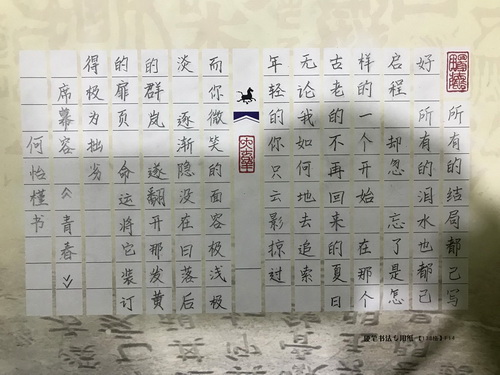 所有的结局都已写
好 所有的泪水也都已
启程 却忽忘了是怎
样的一个开始 在那个
古老的不再回来的夏日
无论我如何地去追索
年轻的你只云影掠过
而你微笑的面容极浅极
淡 逐渐隐没在日落后
的群岚 遂翻开那发黄
的扉页 命运将它装订
得极为拙劣
席慕容《青春》
何怡槿书
硬笔书法专用纸